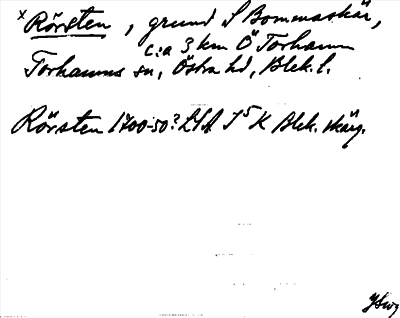 x Rörsten, grund S Bommaskär,
c:a 3 km Ö Torhamn
Torhamns sn, Östra hd, Blek. l.
Rörsten 1700-50? LSA J5 K Blek. skärg.